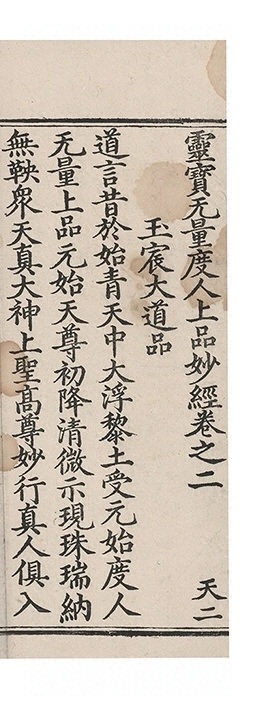 靈寶无量度人上品妙經卷之二
天二
玉宸大道品
道言昔於始青天中大浮黎土受元始度人
无量上品元始天尊初降清微示現珠瑞納
無鞅衆天真大神上聖髙尊妙行真人俱入